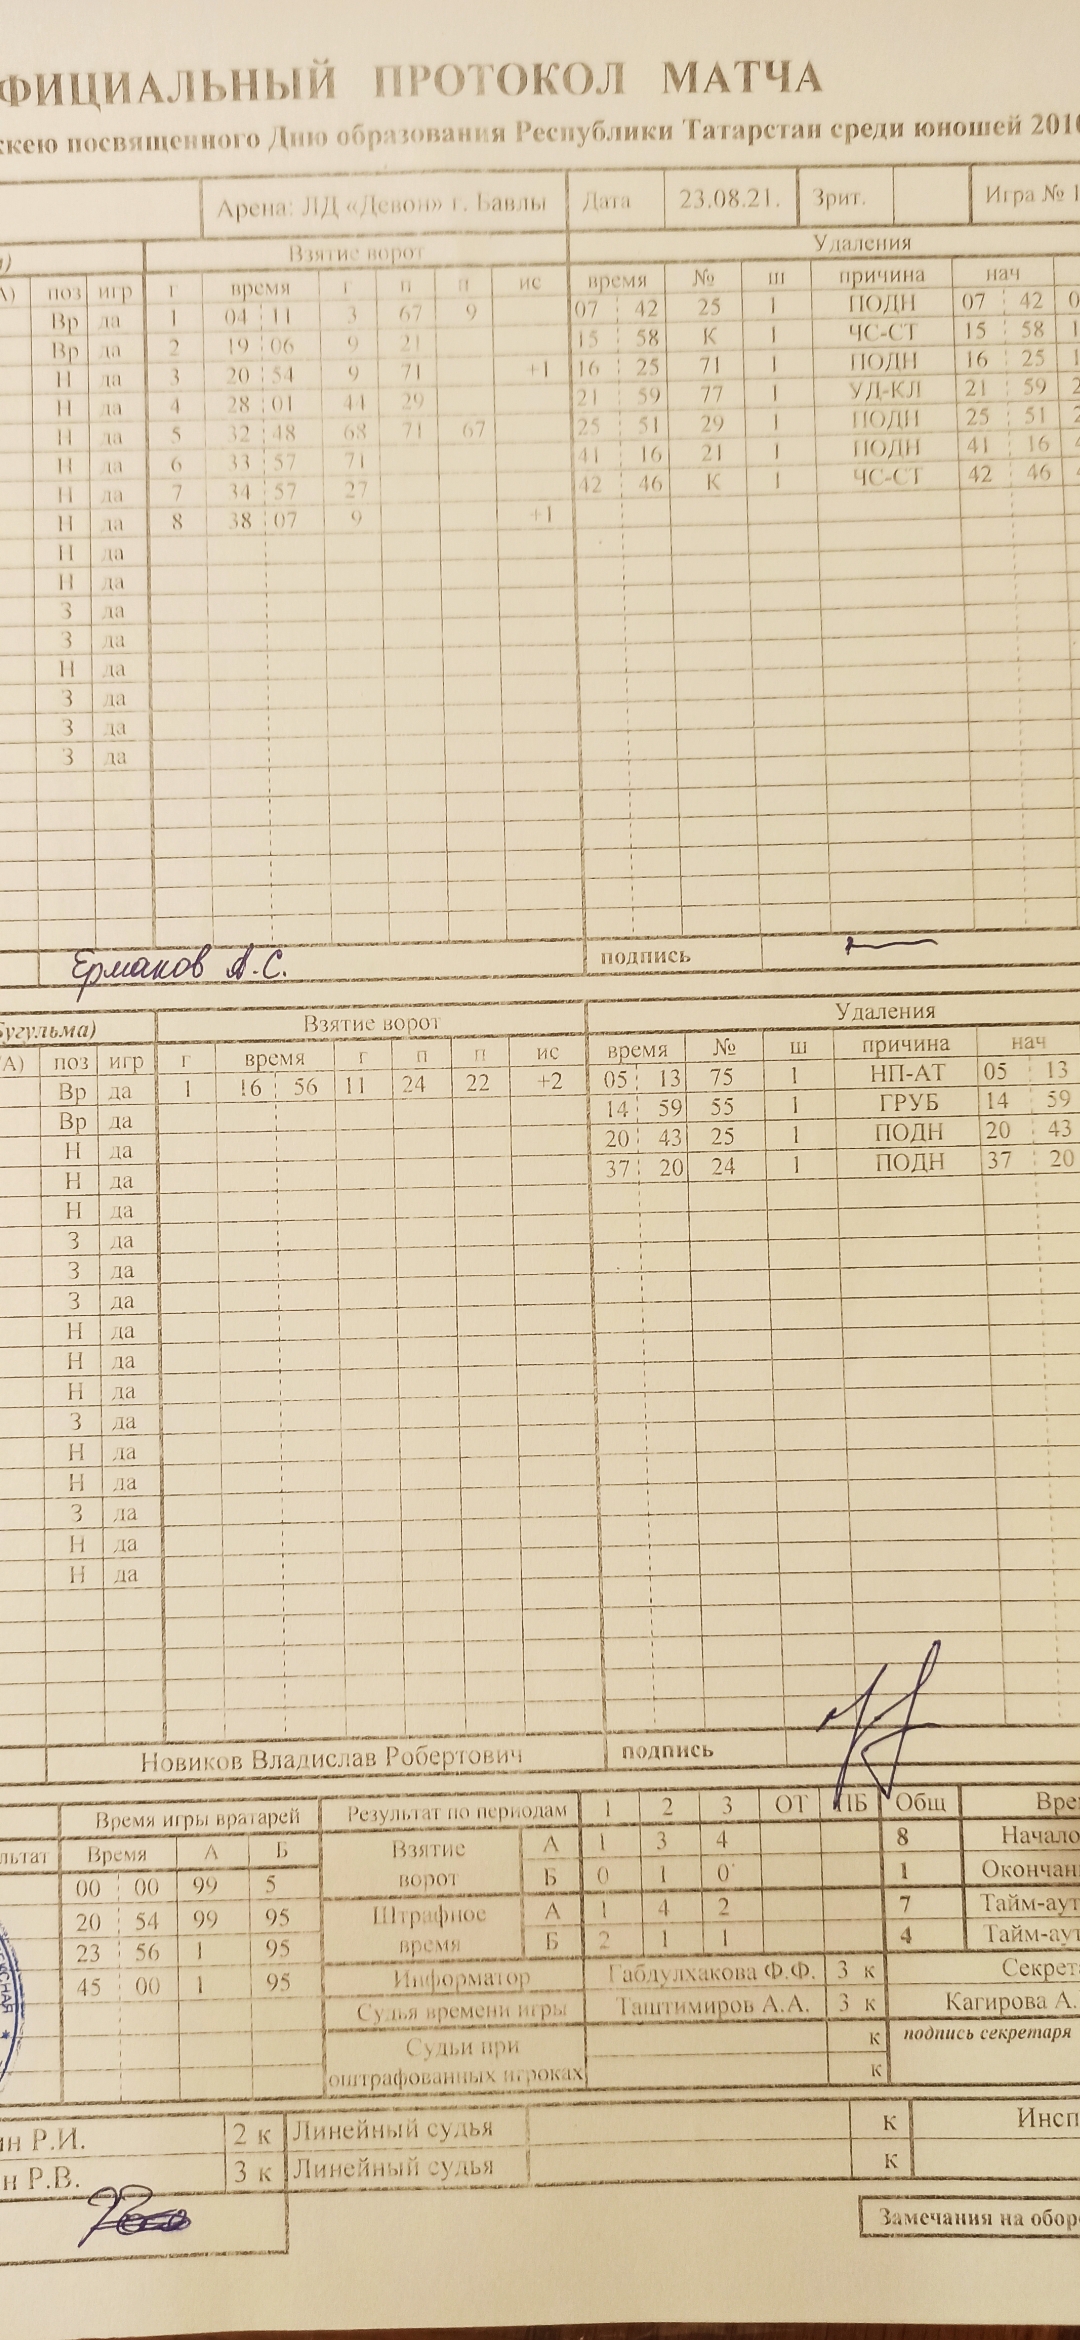 ФИЦИАЛЬНЫЙ ПРОТОКОЛ МАТЧА
ккею посвященного Дню образования Республики Татарстан среди юношей 2010
Арена: ЛД «Девон» г. Бавлы Дата 23.08.21. Зрит. Игра № 1
Взятие ворот Удаления
А) поз игр г время г п п ис время № ш причина нач
Вр да 1 04 11 3 67 9 07 42 25 1 ПОДН 07 42 0
Вр да 2 19 06 9 21 15 58 К 1 ЧС-СТ 15 58 1
Н да 3 20 54 9 71 +1 16 25 71 1 ПОДН 16 25 1
Н да 4 28 01 44 29 21 59 77 1 УД-КЛ 21 59 2
Н да 5 32 48 68 71 67 25 51 29 1 ПОДН 25 51 2
Н да 6 33 57 71 41 16 21 1 ПОДН 41 16 4
Н да 7 34 57 27 42 46 К 1 ЧС-СТ 42 46 4
Н да 8 38 07 9 +1
Н да
Н да
З да
З да
Н да
З да
З да
З да
Ермаков А.С. подпись
Бугульма) Взятие ворот Удаления
А) поз игр г время г п п ис время № ш причина нач
Вр да 1 16 56 11 24 22 +2 05 13 75 1 НП-АТ 05 13
Вр да 14 59 55 1 ГРУБ 14 59
Н да 20 43 25 1 ПОДН 20 43
Н да 37 20 24 1 ПОДН 37 20
Н да
З да
З да
З да
Н да
Н да
Н да
З да
Н да
Н да
З да
Н да
Н да
Новиков Владислав Робертович подпись
Время игры вратарей Результат по периодам 1 2 3 ОТ ПБ Общ Вре
льтат Время А Б Взятие ворот А 1 3 4 8 Начало
00 00 99 5 Б 0 1 0 1 Окончан
20 54 99 95 Штрафное время А 1 4 2 7 Тайм-аут
23 56 1 95 Б 2 1 1 4 Тайм-аут
45 00 1 95 Информатор Габдулхакова Ф.Ф. 3 к Секрет
Судья времени игры Таштимиров А.А. 3 к Кагирова А.
Судьи при к подпись секретаря
оштрафованных игроках к
ин Р.И. 2 к Линейный судья к Инсп
н Р.В. 3 к Линейный судья к
Замечания на обор